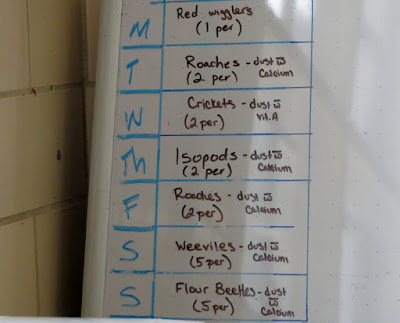 M
Red wigglers
(1 per)
T
Roaches - dust c̄
(2 per) Calcium
W
Crickets - dust c̄
(2 per) vit. A
Th
Isopods - dust c̄
(2 per) Calcium
F
Roaches - dust c̄
(2 per) Calcium
S
Weeviles - dust c̄
(5 per) Calcium
S
Flour Beetles - dust
(5 per) c̄
Calcium